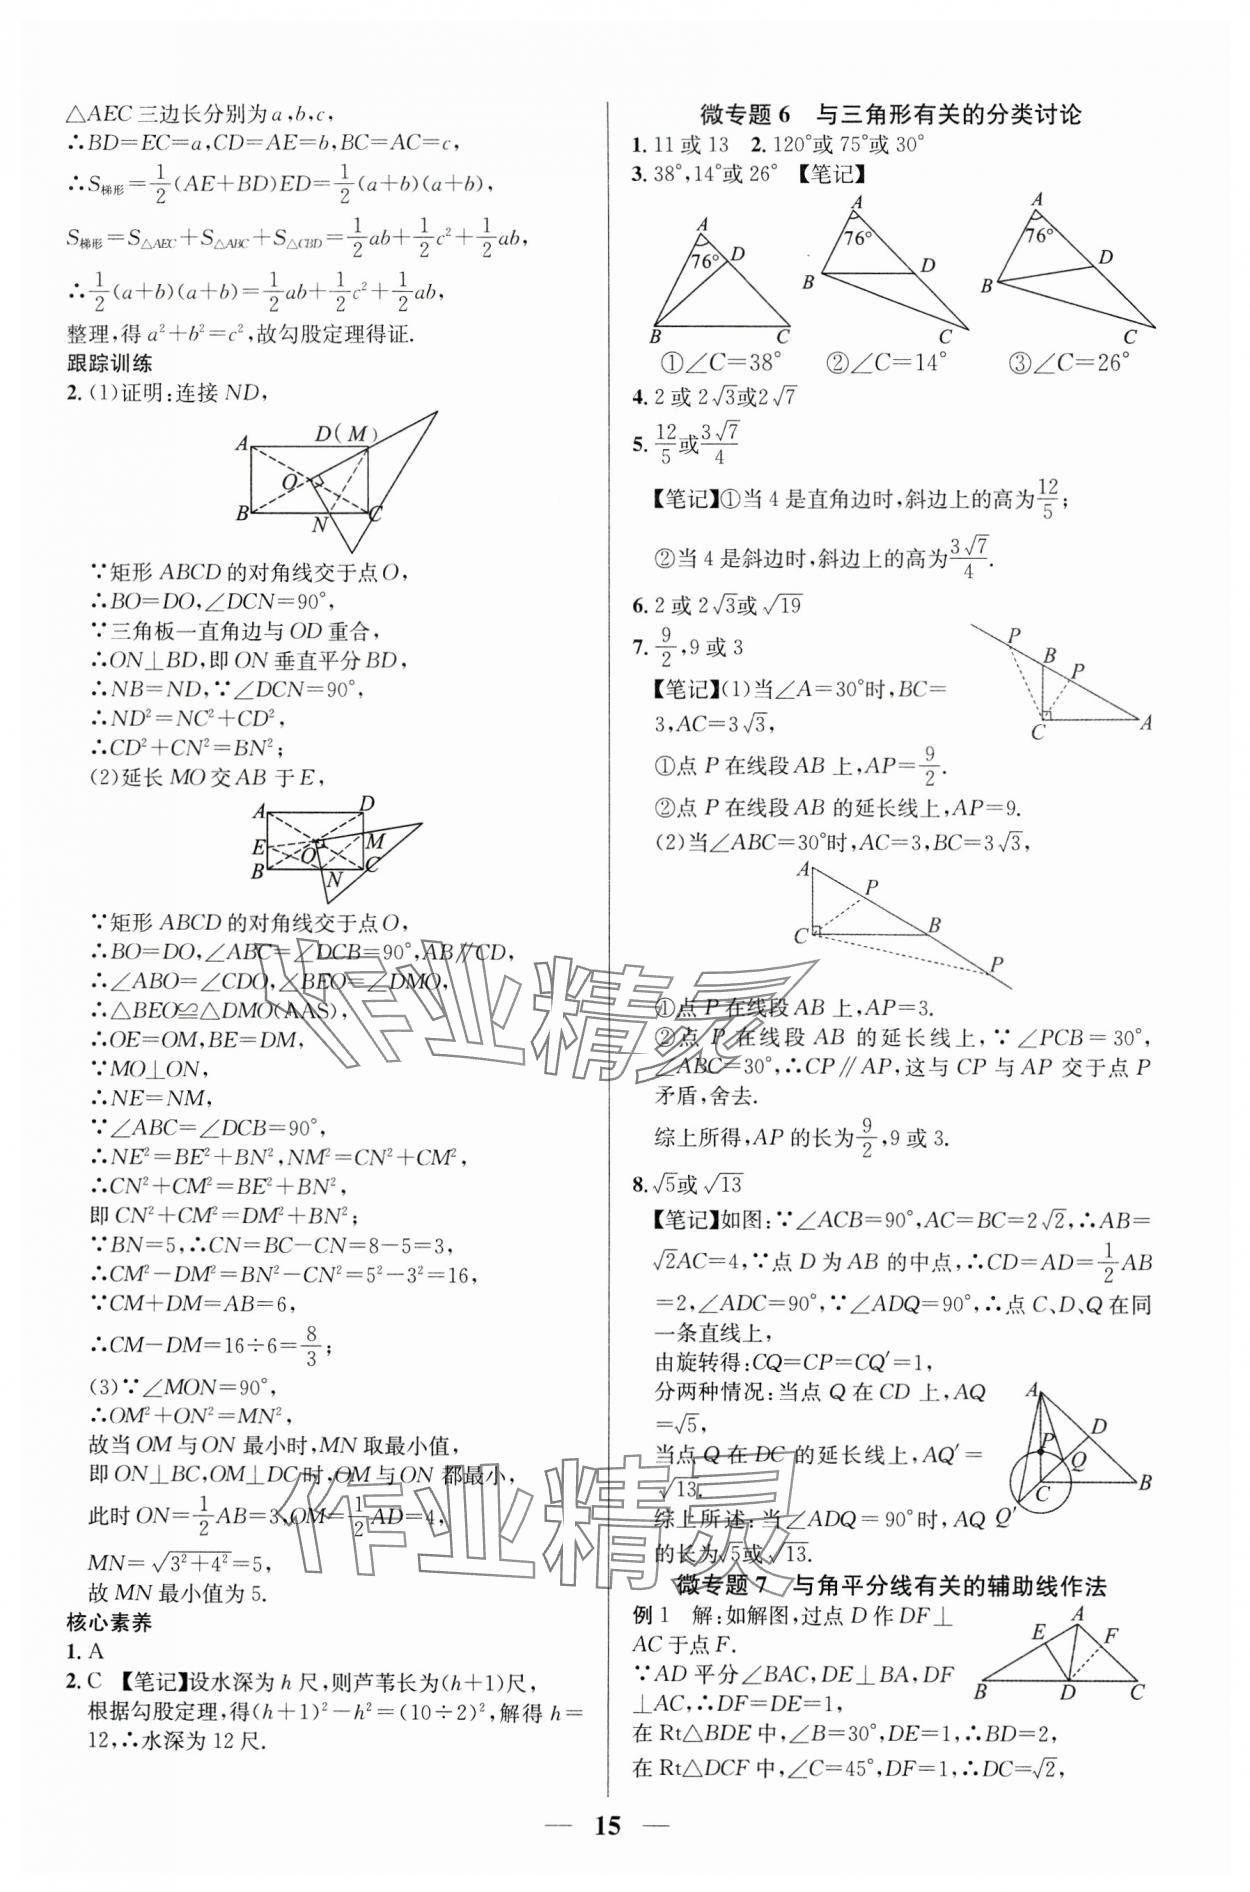 △AEC三边长分别为a,b,c,
∴BD=EC=a,CD=AE=b,BC=AC=c,
∴S梯形=1/2(AE+BD)ED=1/2(a+b)(a+b),
S梯形=S△AEC+S△ABC+S△CBD=1/2ab+1/2c²+1/2ab,
∴1/2(a+b)(a+b)=1/2ab+1/2c²+1/2ab,
整理,得a²+b²=c²,故勾股定理得证.
跟踪训练
2.(1)证明:连接ND,
A D(M) O B N C
∵矩形ABCD的对角线交于点O,
∴BO=DO,∠DCN=90°,
∵三角板一直角边与OD重合,
∴ON⊥BD,即ON垂直平分BD,
∴NB=ND,∵∠DCN=90°,
∴ND²=NC²+CD²,
∴CD²+CN²=BN²;
(2)延长MO交AB于E,
A D E M O B N C
∵矩形ABCD的对角线交于点O,
∴BO=DO,∠ABC=∠DCB=90°,AB∥CD,
∴∠ABO=∠CDO,∠BEO=∠DMO,
∴△BEO≌△DMO(AAS),
∴OE=OM,BE=DM,
∵MO⊥ON,
∴NE=NM,
∵∠ABC=∠DCB=90°,
∴NE²=BE²+BN²,NM²=CN²+CM²,
∴CN²+CM²=BE²+BN²,
即CN²+CM²=DM²+BN²;
∵BN=5,∴CN=BC-CN=8-5=3,
∴CM²-DM²=BN²-CN²=5²-3²=16,
∵CM+DM=AB=6,
∴CM-DM=16÷6=8/3;
(3)∵∠MON=90°,
∴OM²+ON²=MN²,
故当OM与ON最小时,MN取最小值,
即ON⊥BC,OM⊥DC时,OM与ON都最小,
此时ON=1/2AB=3,OM=1/2AD=4,
MN=√(3²+4²)=5,
故MN最小值为5.
核心素养
1.A
2.C 【笔记】设水深为h尺,则芦苇长为(h+1)尺,
根据勾股定理,得(h+1)²-h²=(10÷2)²,解得h=
12,∴水深为12尺.
微专题6 与三角形有关的分类讨论
1.11或13 2.120°或75°或30°
3.38°,14°或26° 【笔记】
A 76° D B C
A 76° D B C
A 76° D B C
①∠C=38° ②∠C=14° ③∠C=26°
4.2或2√3或2√7
5.12/5或3√7/4
【笔记】①当4是直角边时,斜边上的高为12/5;
②当4是斜边时,斜边上的高为3√7/4.
6.2或2√3或√19
7.9/2,9或3
P B P C A
【笔记】(1)当∠A=30°时,BC=
3,AC=3√3,
①点P在线段AB上,AP=9/2.
②点P在线段AB的延长线上,AP=9.
(2)当∠ABC=30°时,AC=3,BC=3√3,
A P C B P
①点P在线段AB上,AP=3.
②点P在线段AB的延长线上,∵∠PCB=30°,
∠ABC=30°,∴CP∥AP,这与CP与AP交于点P
矛盾,舍去.
综上所得,AP的长为9/2,9或3.
8.√5或√13
【笔记】如图:∵∠ACB=90°,AC=BC=2√2,∴AB=
√2AC=4,∵点D为AB的中点,∴CD=AD=1/2AB
=2,∠ADC=90°,∵∠ADQ=90°,∴点C、D、Q在同
一条直线上,
由旋转得:CQ=CP=CQ′=1,
分两种情况:当点Q在CD上,AQ
=√5,
当点Q在DC的延长线上,AQ′=
√13.
综上所述:当∠ADQ=90°时,AQ
的长为√5或√13.
A D P Q C B Q′
微专题7 与角平分线有关的辅助线作法
例1 解:如解图,过点D作DF⊥
AC于点F.
∵AD平分∠BAC,DE⊥BA,DF
⊥AC,∴DF=DE=1,
A E F B D C
在Rt△BDE中,∠B=30°,DE=1,∴BD=2,
在Rt△DCF中,∠C=45°,DF=1,∴DC=√2,
— 15 —
作业精灵
作业精灵